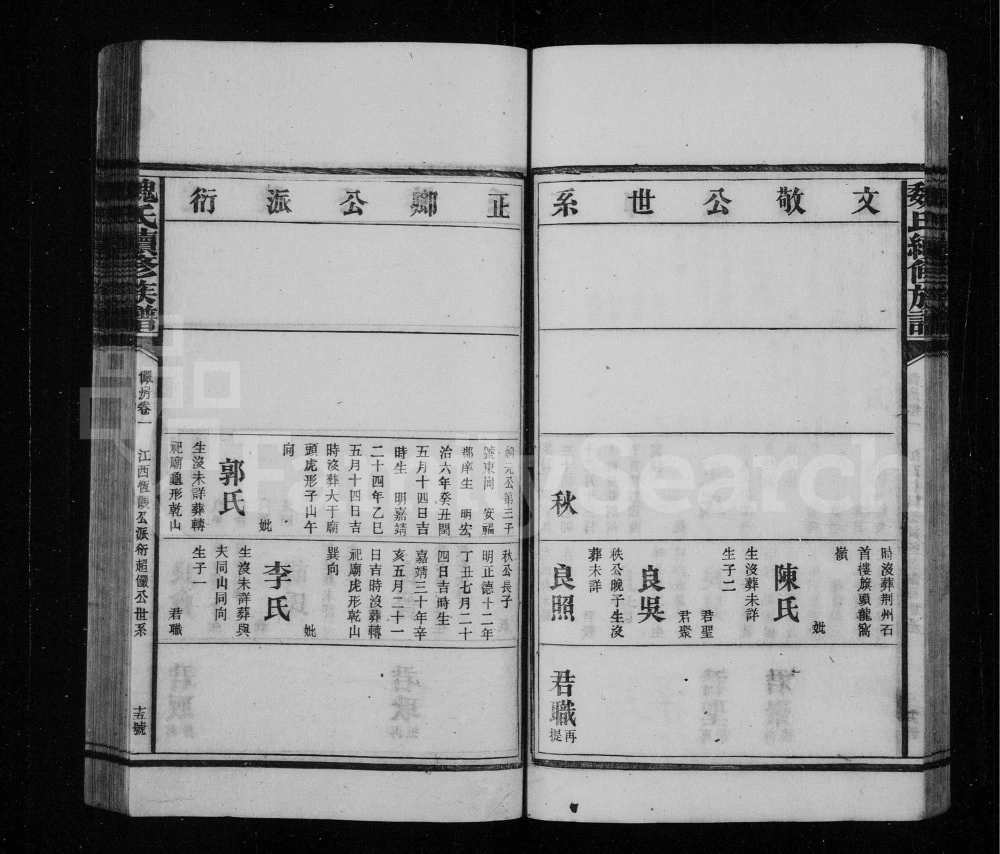 文敬公世系
時沒葬荆州石
首樓旗頭龍窩
嶺
妣
陳氏
生沒葬未詳
生子二
君聖
君聚
良吳
秩公晚子生沒
葬未詳
秋
良照
君職
再提
正鄉公派衍
魏氏續修族譜
元公第三子
號東岡 安福
郡庠生 明宏
治六年癸丑閏
五月十四日吉
時生 明嘉靖
二十四年乙巳
五月十四日吉
時沒葬大于廟
頭虎形子山午
向
妣
郭氏
生沒未詳葬轉
祀廟龜形乾山
秋公長子
明正德十二年
丁丑七月二十
四日吉時生
嘉靖三十年辛
亥五月二十一
日吉時沒葬轉
祀廟虎形乾山
巽向
妣
李氏
生沒未詳葬與
夫同山同向
生子一
君職
魏氏續修族譜
儼房卷一
江西恆觀公派衍超儼公世系
十五號
FamilySearch